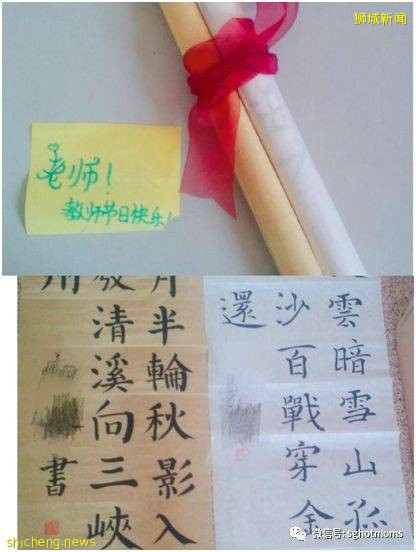 狮城新闻
老师!
教师节日快乐!
月半輪秋影入
發清溪向三峽
州
書
雲暗雪山孤
沙百戰穿金
還
shicheng.news
微信号: sghotmoms